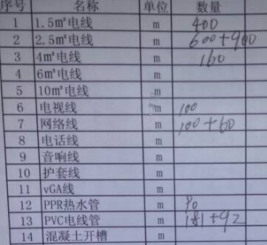 序号 名称 单位 数量
1 1.5m²电线 m 400
2 2.5m²电线 m 600+900
3 4m²电线 m 160
4 6m²电线 m
5 10m²电线 m
6 电视线 m 100
7 网络线 m 100+60
8 电话线 m
9 音响线 m
10 护套线 m
11 vGA线 m
12 PPR热水管 m
13 PVC电线管 m 181+92
14 混凝土开槽 m